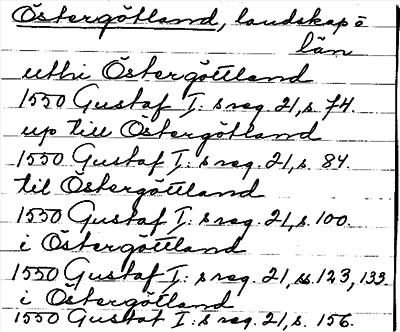 Östergötland, landskap o
län
uthi Östergöttland
1550 Gustaf I: s reg. 21, s. 74.
up till Östergötland
1550 Gustaf I: s reg. 21, s. 84.
til Östergöttland
1550 Gustaf I: s reg. 21, s. 100.
i Östergöttland
1550 Gustaf I: s reg. 21, ss. 123, 133.
i Östergöttland
1550 Gustaf I: s reg. 21, s. 156.